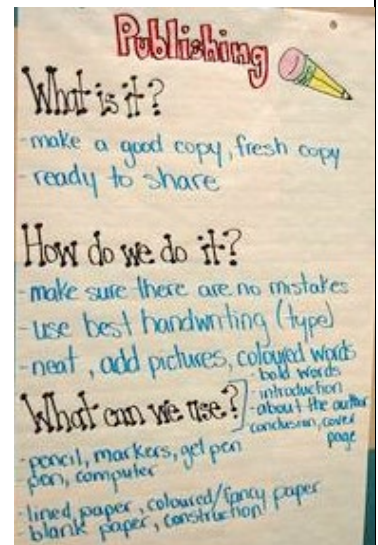 Publishing
What is it?
-make a good copy, fresh copy
-ready to share
How do we do it?
-make sure there are no mistakes
-use best handwriting (type)
-neat, add pictures, coloured words
- bold words
- introduction
- about the author
conclusion, cover
page
What can we use?
-pencil, markers, gel pen
-pen, computer
-lined paper, coloured/fancy paper
-blank paper, construction